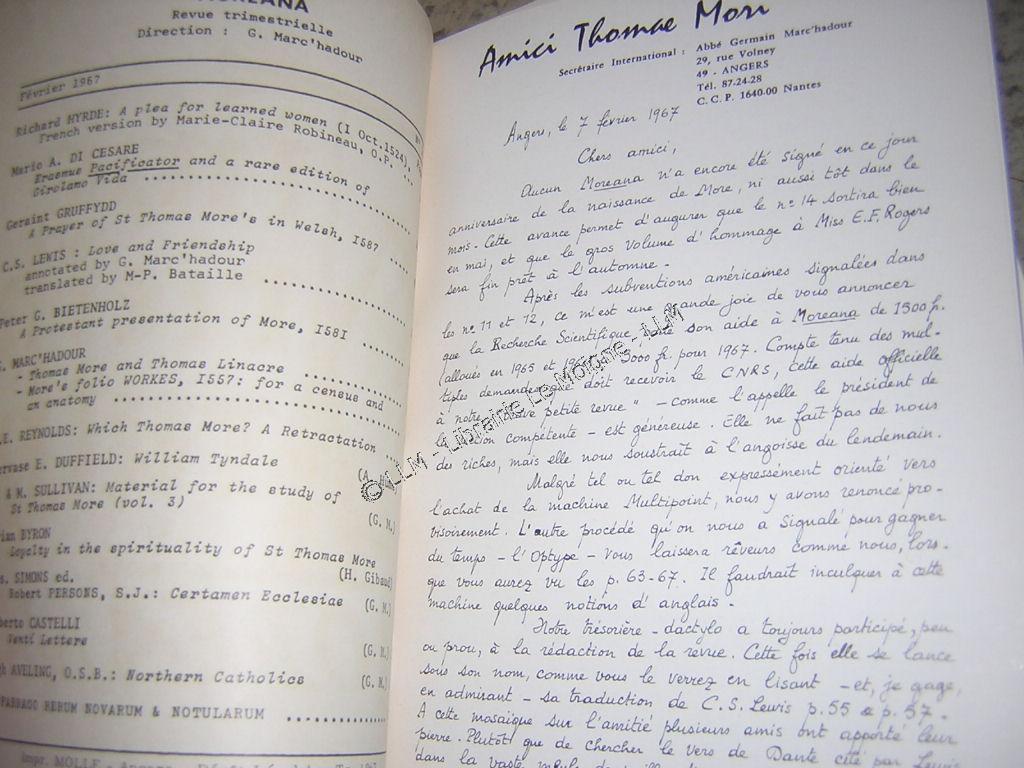 MOREANA
Revue trimestrielle
Direction : G. Marc'hadour
Février 1967
Richard HYRDE: A plea for learned women (I Oct.1524),
French version by Marie-Claire Robineau, O.P. ...
Mario A. DI CESARE
Erasmus Pacificator and a rare edition of
Girolamo Vida ..........
Geraint GRUFFYDD
A Prayer of St Thomas More's in Welsh, I587
C.S. LEWIS : Love and Friendship
annotated by G. Marc'hadour
translated by M-P. Bataille ..........
Peter G. BIETENHOLZ
A Protestant presentation of More, I58I
MARC'HADOUR
- Thomas More and Thomas Linacre ..........
- More's folio WORKES, I557: for a census and
an anatomy ..........
.E. REYNOLDS: Which Thomas More? A Retractation
ervase E. DUFFIELD: William Tyndale
& M. SULLIVAN: Material for the study of
St Thomas More (vol. 3) (G. M.)
BYRON
Loyalty in the spirituality of St Thomas More
(H. Gibaud)
s. SIMONS ed.
Robert PERSONS, S.J.: Certamen Ecclesiae (G. M.)
berto CASTELLI
Venti Lettere (G. M.)
gh AVELING, O.S.B.: Northern Catholics (G. M.)
FARRAGO RERUM NOVARUM & NOTULARUM ..........
Impr. MOLLE - Angers
Amici Thomae Mori
Secrétaire International : Abbé Germain Marc'hadour
29, rue Volney
49 - ANGERS
Tél. 87.24.28
C. C. P. 1640-00 Nantes
Angers, le 7 février 1967
Chers amici,
Aucun Moreana n'a encore été signé en ce jour
anniversaire de la naissance de More, ni aussi tôt dans le
mois. Cette avance permet d'augurer que le n° 14 sortira bien
en mai, et que le gros volume d'hommage à Miss E.F. Rogers
sera fin prêt à l'automne.
Après les subventions américaines signalées dans
les nos 11 et 12, ce m'est une grande joie de vous annoncer
que la Recherche Scientifique porte son aide à Moreana de 1500 f.
(alloués en 1965 et 1966) à 3000 f. pour 1967. Compte tenu des mul-
tiples demandes que doit recevoir le CNRS, cette aide officielle
à notre "petite revue" - comme l'appelle le président de
la section compétente - est généreuse. Elle ne fait pas de nous
des riches, mais elle nous soustrait à l'angoisse du lendemain.
Malgré tel ou tel don expressément orienté vers
l'achat de la machine Multipoint, nous y avons renoncé pro-
visoirement. L'autre procédé qu'on nous a signalé pour gagner
du temps - l'Optype - vous laissera rêveurs comme nous, lors-
que vous aurez vu les p. 63-67. Il faudrait inculquer à cette
machine quelques notions d'anglais.
Notre trésorière - dactylo a toujours participé, peu
ou prou, à la rédaction de la revue. Cette fois elle se lance
sous son nom, comme vous le verrez en lisant - et, je gage,
en admirant - sa traduction de C.S. Lewis p. 55 à p. 57.
A cette mosaïque sur l'amitié plusieurs amis ont apporté leur
pierre. Plutôt que de chercher le vers de Dante cité par Lewis
dans la vaste
© ALLM - Librairie Le Moigne - ALLM